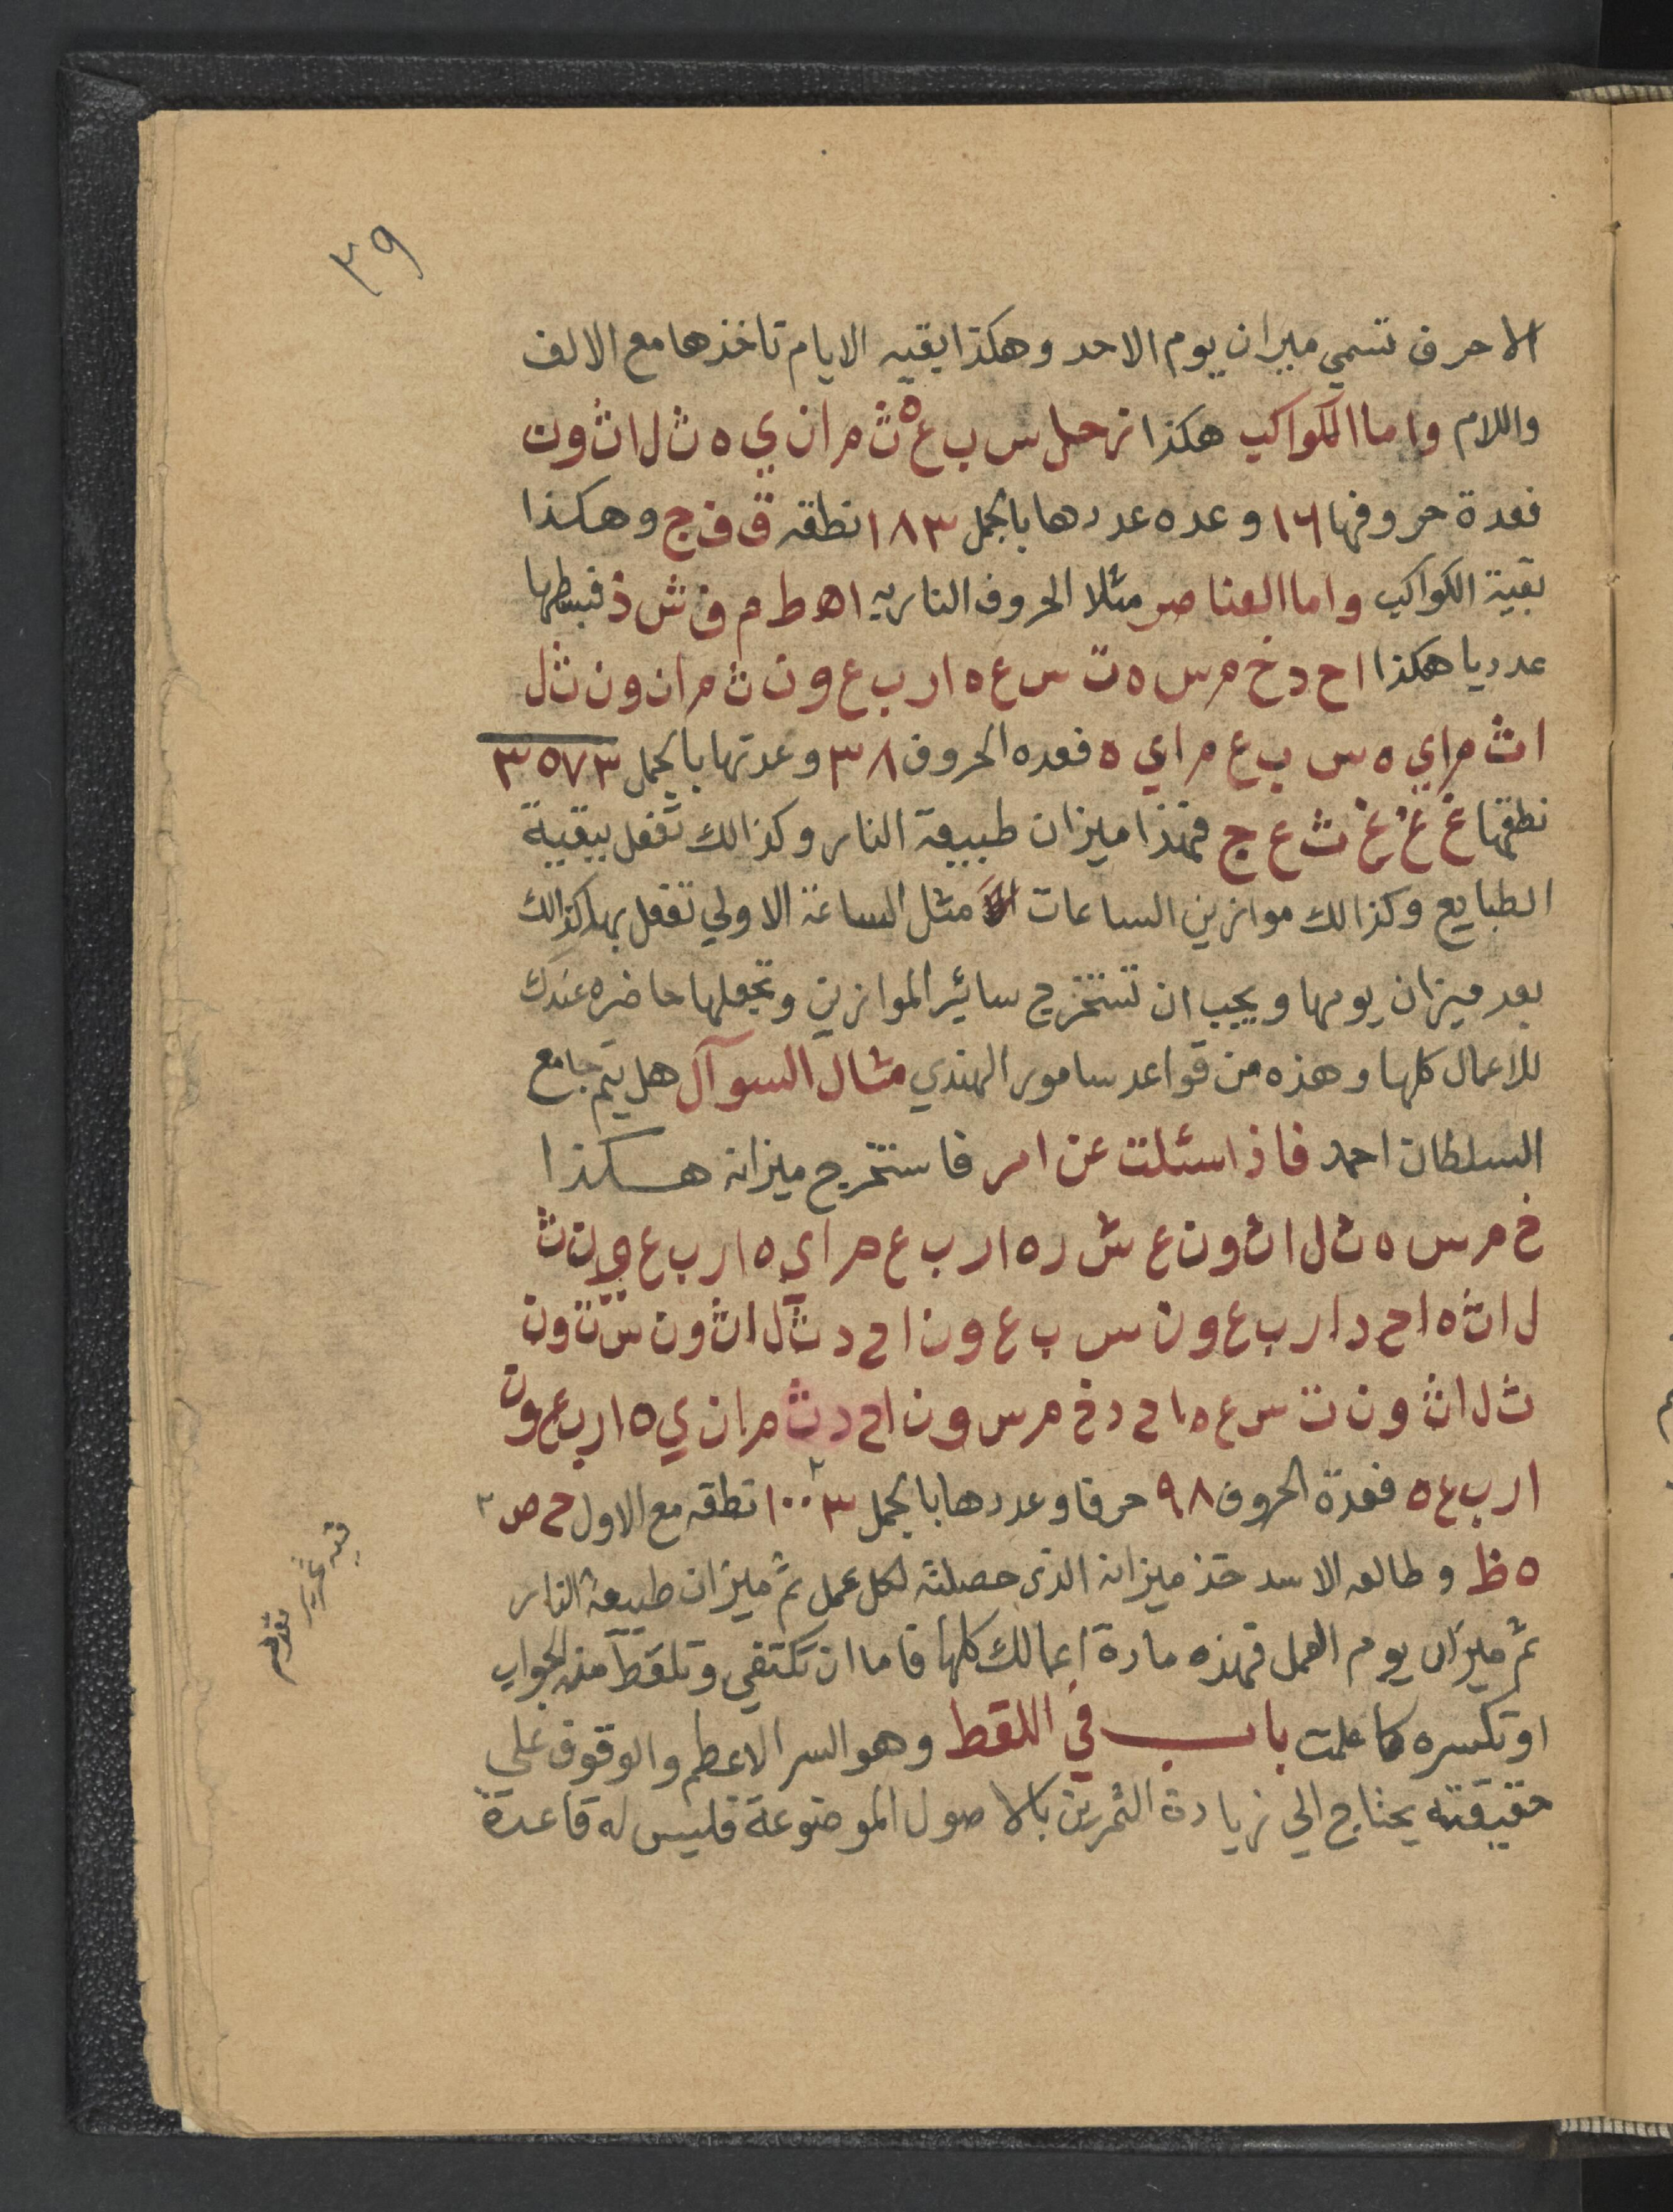 ٣٩
الاحرف تسمي ميزان يوم الاحد وهكذا بقيه الايام تاخذها مع الالف
واللام واما الكواكب هكذا زحل س ب ع ه ث م ا ن ي ه ث ل ا ث و ن
فعدة حروفها ١٦ وعده عددها بالجمل ١٨٣ نطقه ق ف ج وهكذا
بقية الكواكب واما العناصر مثلا الحروف الناريه ا ه ط م ف ش ذ فبسطها
عدديا هكذا ا ح د خ م س ه ت س ع ه ا ر ب ع و ن ث م ا ن و ن ث ل
ا ث م ا ي ه س ب ع م ا ي ه فعده الحروف ٣٨ وعدتها بالجمل ٣٥٧٣
نطقها غ غ غ ث ع ج فهذا ميزان طبيعة النار وكذالك تفعل ببقيية
الطبايع وكذالك موازين الساعات مثل الساعة الاولي تفعل بها كذالك
بعد ميزان يومها ويجب ان تستخرج سائير الموازين وتجعلها حاضره عندك
للاعمال كلها وهذه من قواعد سامور الهندي مثال السوآل هل يتم جامع
السلطان احمد فاذا سئلت عن امر فاستخرج ميزانه هكذا
خ م س ه ث ل ا ث و ن ع ش ر ه ا ر ب ع م ا ي ه ا ر ب ع و ن ث
ل ا ث ه ا ح د ا ر ب ع و ن س ب ع و ن ا ح د ث ل ا ث و ن س ت و ن
ث ل ا ث و ن ت س ع ه ا ح د خ م س و ن ا ح د ث م ا ن ي ه ا ر ب ع و ن
ا ر ب ع ه فعدة الحروف ٩٨ حرفا وعددها بالجمل ١٠٠٣ نطقه مع الاول ح ص
ه ظ وطالعه الاسد خذ ميزانه الذي حصلته لكل عمل ثم ميزان طبيعة النار
ثم ميزان يوم العمل فهذه مادة اعمالك كلها فاما ان تكتفي وتلقط منه الجواب
او تكسره كما علمت باب في اللقط وهو السر الاعظم والوقوف علي
حقيقته يحتاج الي زيادة التمرين بالاصول الموضوعة فليس له قاعدة